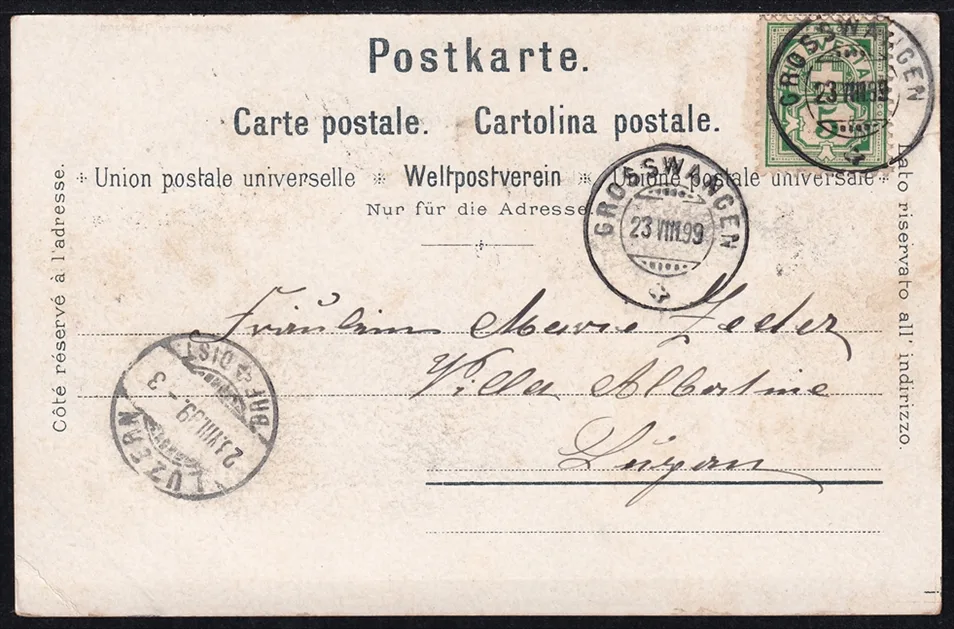 Postkarte.
Carte postale. Cartolina postale.
Union postale universelle Weltpostverein postale universale
Nur für die Adresse
Côté réservé à l'adresse.
Lato riservato all' indirizzo.
HELVETIA
GROSSWANGEN
23 VIII 99
GROSSWANGEN
23 VIII.99
Fräulein Marie Zeder
Villa Albertine
Luzern
LUZERN
BRF. DIST
23.VIII.99.-3